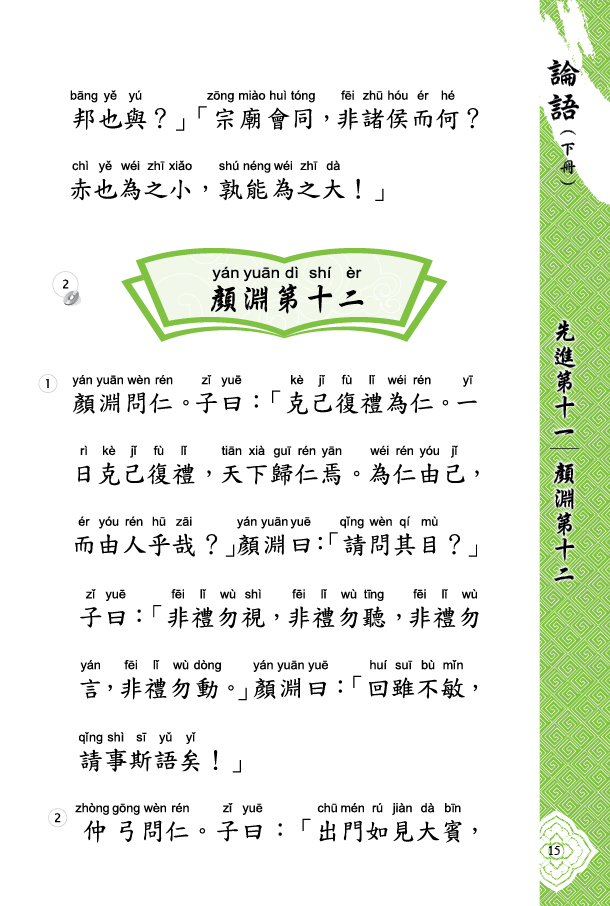 bāng yě yú zōng miào huì tóng fēi zhū hóu ér hé
邦也與？」「宗廟會同，非諸侯而何？
chì yě wéi zhī xiǎo shú néng wéi zhī dà
赤也為之小，孰能為之大！」
2
yán yuān dì shí èr
顏淵第十二
1
yán yuān wèn rén zǐ yuē kè jǐ fù lǐ wéi rén yī
顏淵問仁。子曰：「克己復禮為仁。一
rì kè jǐ fù lǐ tiān xià guī rén yān wéi rén yóu jǐ
日克己復禮，天下歸仁焉。為仁由己，
ér yóu rén hū zāi yán yuān yuē qǐng wèn qí mù
而由人乎哉？」顏淵曰：「請問其目？」
zǐ yuē fēi lǐ wù shì fēi lǐ wù tīng fēi lǐ wù
子曰：「非禮勿視，非禮勿聽，非禮勿
yán fēi lǐ wù dòng yán yuān yuē huí suī bù mǐn
言，非禮勿動。」顏淵曰：「回雖不敏，
qǐng shì sī yǔ yǐ
請事斯語矣！」
2
zhòng gōng wèn rén zǐ yuē chū mén rú jiàn dà bīn
仲弓問仁。子曰：「出門如見大賓，
論語（下冊）
先進第十一｜顏淵第十二
15